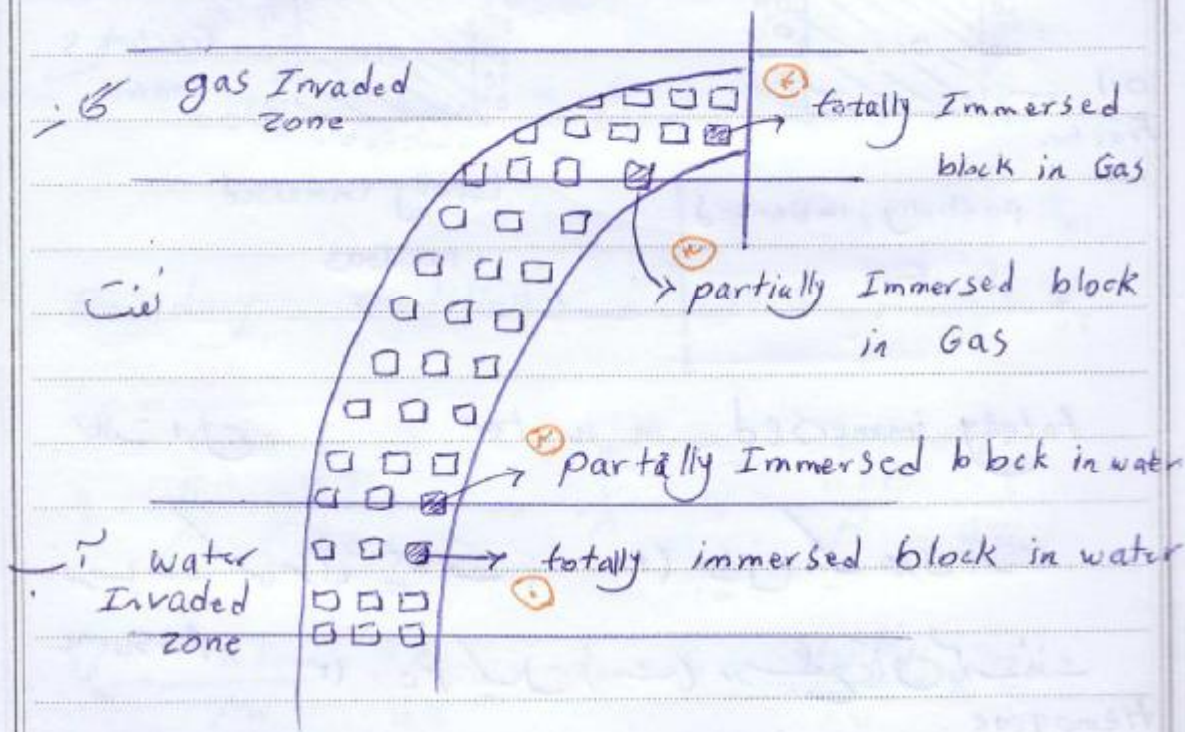 gas Invaded
zone
گاز
totally Immersed
block in Gas
نفت
partially Immersed block
in Gas
partially Immersed block in water
آب
water
Invaded
zone
totally immersed block in water